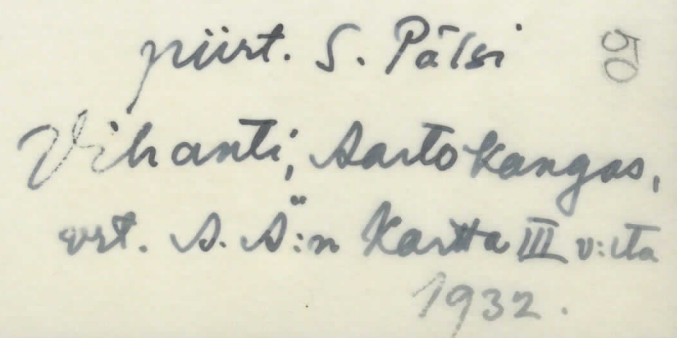 piirt. S. Pälsi
50
Vihanti, Aartokangas,
vrt. A. Ä:n Kartta III v:lta
1932.